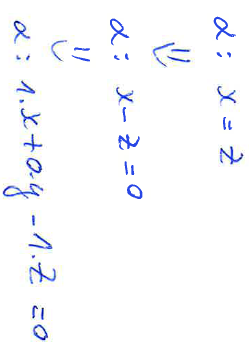 α: x = z
⇓
α: x - z = 0
⇓
α: 1.x + 0.y - 1.z = 0